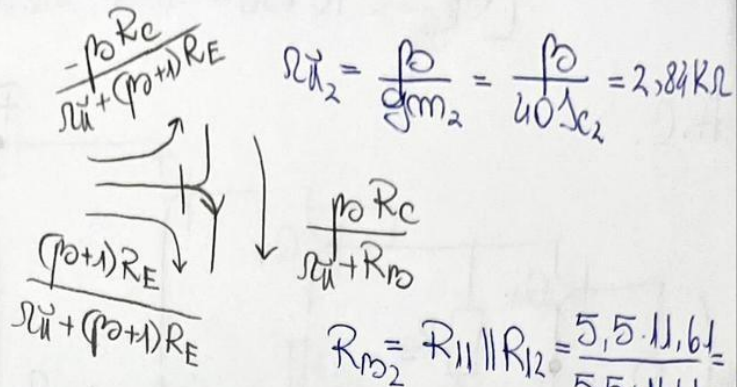 -βRc / rπ+(β+1)RE
rπ₂ = β / gm₂ = β / 40Ic₂ = 2,84KΩ
βRc / rπ+RB
(β+1)RE / rπ+(β+1)RE
RB₂ = R11 || R12 = 5,5·11,61 / =